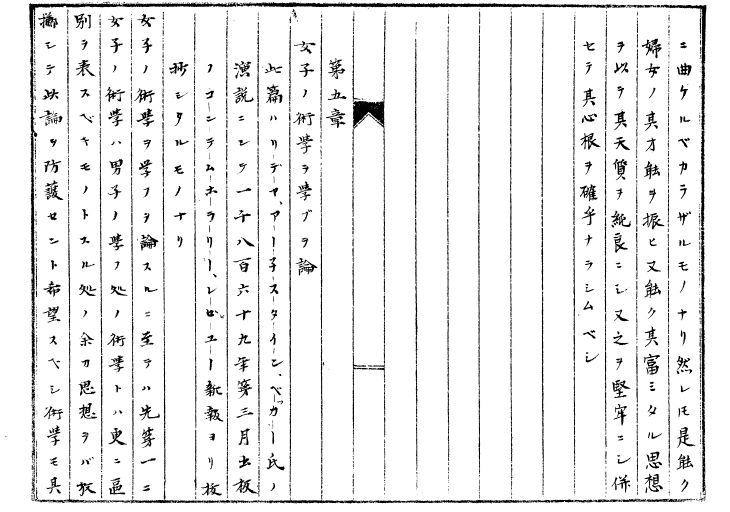 ニ曲ケルベカラザルモノナリ然レ𪜈是能ク
婦女ノ真才能ヲ振ヒ又能ク其富ミタル思想
ヲ以テ其天質ヲ純良ニシ又之ヲ堅牢ニシ併
セテ真心根ヲ確乎ナラシムベシ
第五章
女子ノ術學ヲ學ブヲ論
此篇ハリデヤ、アー子スタイン、ベッカー氏ノ
演説ニシテ一千八百六十九年第三月出板
ノコーンテムホラリー、レビユー新報ヨリ抜
抄シタルモノナリ
女子ノ術學ヲ学フヲ論スルニ至テハ先第一ニ
女子ノ術學ハ男子ノ學フ処ノ術學トハ更ニ區
別ヲ表スベキモノトスル処ノ余カ思想ヲバ放
擲シテ此論ヲ防護セント希望スベシ術學モ具